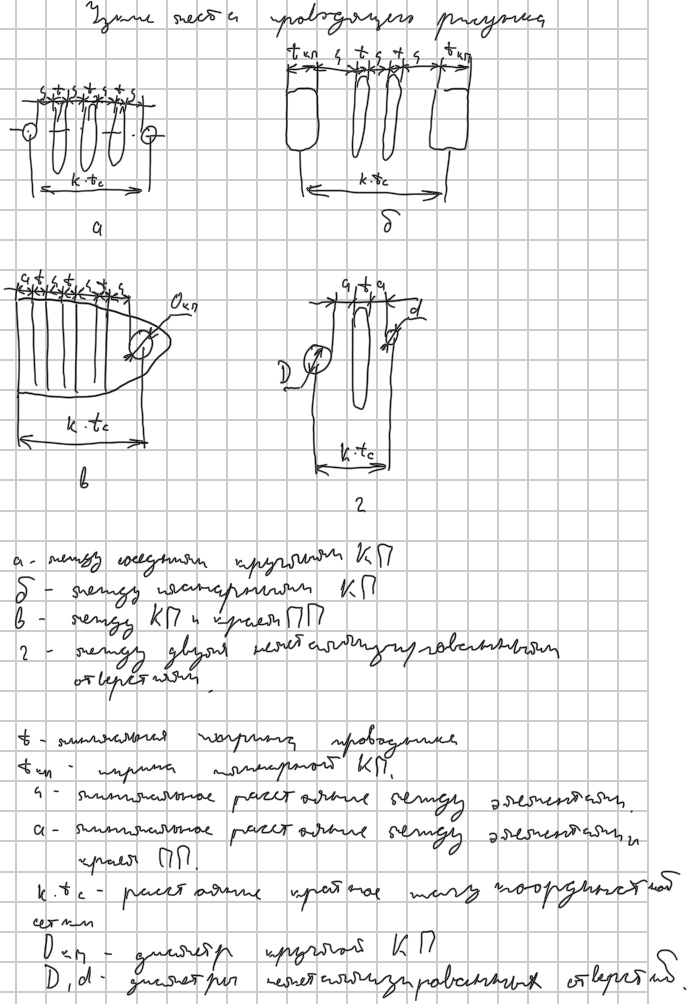 Узкие места проводящего рисунка
tкп s t s t s tкп
s t s t s t s
k·tc
k·tc
а
б
a t s t s t s
Dкп
k·tc
в
a t a
d
D
k·tc
г
а - между соседними круглыми КП
б - между планарными КП
в - между КП и краем ПП
г - между двумя неметаллизированными
отверстиями.
t - минимальная ширина проводника
tкп - ширина планарной КП.
s - минимальное расстояние между элементами.
а - минимальное расстояние между элементами и
краем ПП.
k·tc - расстояние кратное шагу координатной
сетки
Dкп - диаметр круглой КП
D, d - диаметры неметаллизированных отверстий.